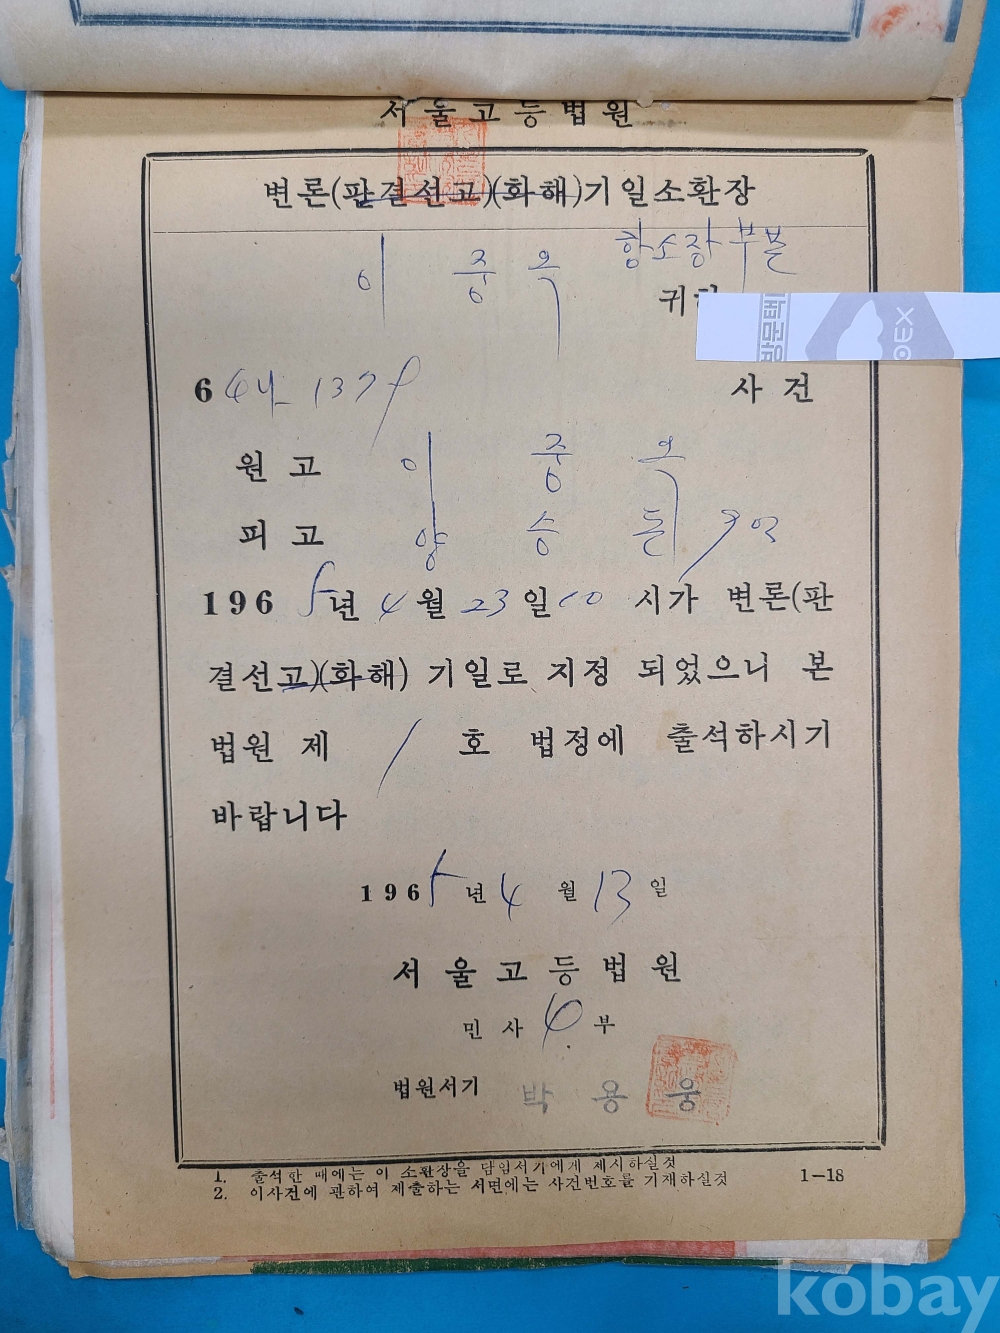 서울고등법원
변론(판결선고)(화해)기일소환장
이 중 옥 항소장부본
귀하
64나 1379 사건
원고 이 중 옥
피고 양 승 돈 외
1965년 4월 23일 10시가 변론(판
결선고)(화해) 기일로 지정 되었으니 본
법원 제 1 호 법정에 출석하시기
바랍니다
1965년 4월 13일
서울고등법원
민사 4 부
법원서기 박 용 웅
1. 출석한 때에는 이 소환장을 담임서기에게 제시하실것
2. 이사건에 관하여 제출하는 서면에는 사건번호를 기재하실것
1-18
kobay